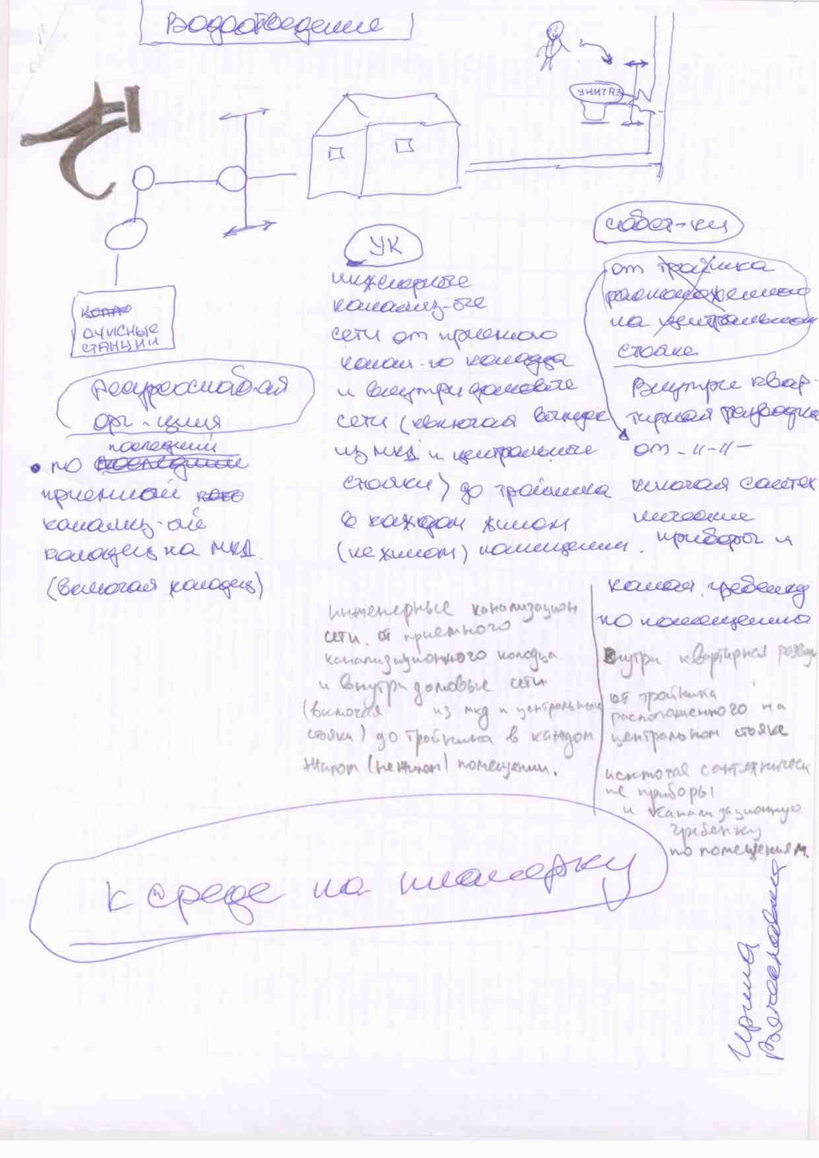 Водоотведение
УНИТАЗ
ОЧИСНЫЕ
СТАНЦИИ
Ресурсоснабжая
орг-ция
последний
• по
приемный
канализ-ый
колодец на МКД.
(включая колодец)
УК
инженерные
канализ-ые
сети от приемного
канал-го колодца
и внутридомовые
сети (включая выпуск
из МКД и центральные
стояки) до тройника
в каждом жилом
(не жилом) помещении.
собст-ки
от тройника
расположенного
на центральном
стояке
Внутри квар-
тирная разводка
от -"-"-
включая сантех
нические
приборы и
канал. гребенку
по помещению
инженерные канализацион
сети от приемного
канализационного колодца
и внутридомовые сети
(включая из мкд и центральные
стояки) до тройника в каждом
жилом (нежилом) помещении.
Внутри квартирная развод
от тройника
расположенного на
центральном стояке
исключая сантехническ
ие приборы
и канализационную
гребенку
по помещениям.
к среде на планерку
Ирина
Вячеславовна